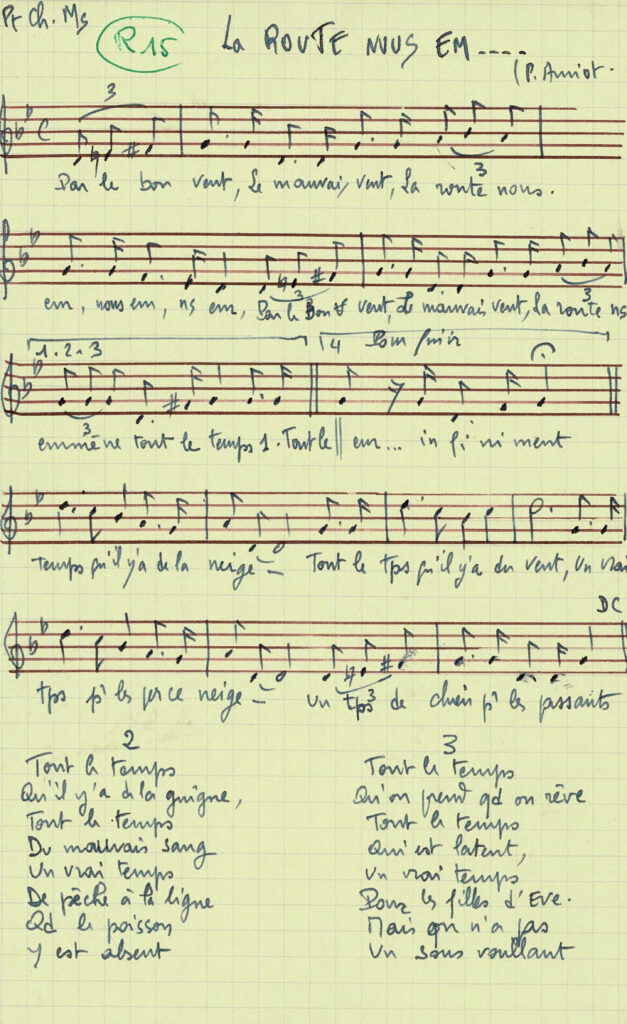 Pt Ch. Ms
R15
La ROUTE NOUS EM.....
(P. Amiot.
3
C
Par le bon vent, Le mauvais vent, La route nous.
3
em, nous em, ns em, Par le Bon vent, Le mauvais vent, La route ns
3
3
1.2.3
4 Pour finir
emmène tout le temps 1. Tout le em... in fi ni ment
3
temps qu'il y'a de la neige — Tout le tps qu'il y'a du vent, Un vrai
DC
tps pr les perce neige — Un tps de chien pr les passants
3
2
Tout le temps
Qu'il y'a de la guigne,
Tout le temps
Du mauvais sang
Un vrai temps
De pêche à la ligne
Qd le poisson
Y est absent
3
Tout le temps
Qu'on prend qd on rêve
Tout le temps
Qui est latent,
Un vrai temps
Pour les filles d'Eve.
Mais on n'a pas
Un sous vaillant